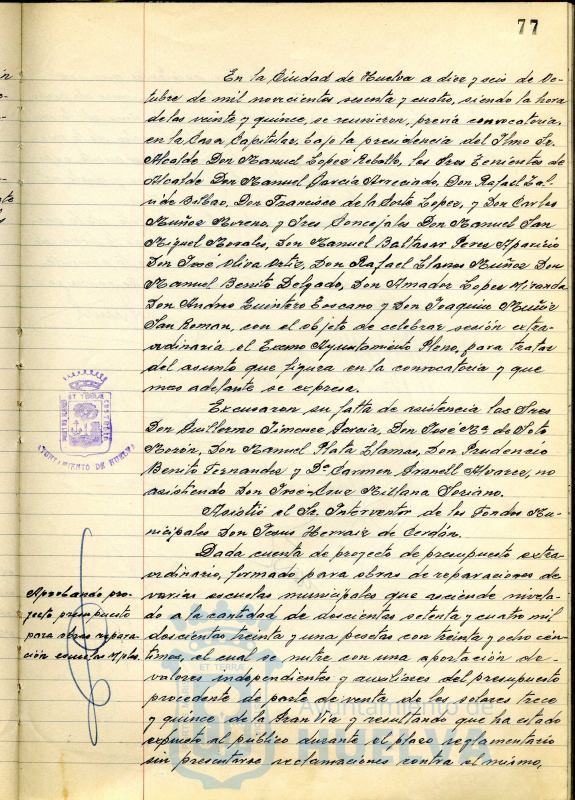 77
En la Ciudad de Huelva a diez y seis de Oc-
tubre de mil novecientos sesenta y cuatro, siendo la hora
de las veinte y quince, se reunieron, previa convocatoria,
en la Casa Capitular, bajo la presidencia del Ilmo Sr.
Alcalde Don Manuel Lopez Rebollo, los Sres Tenientes de
Alcalde Don Manuel García Arreciado, Don Rafael
Bilbao, Don Francisco de la Corte Lopez, y Don Carlos
Muñoz Moreno, y Sres Concejales Don Manuel San
Miguel Morales, Don Manuel Baltasar Peres Aparicio
Don José Oliva Ortiz, Don Rafael Llanes Muñoz Don
Manuel Benito Delgado, Don Amador Lopez Miranda
Don Andres Quintero Toscano y Don Joaquin Muñiz
San Roman, con el objeto de celebrar sesión extra-
ordinaria el Excmo Ayuntamiento Pleno, para tratar
del asunto que figura en la convocatoria y que
mas adelante se expresa.
Excusaron su falta de asistencia los Sres
Don Guillermo Jimenez García, Don José Mª de Soto
Morón, Don Manuel Plata Llamas, Don Prudencio
Benito Fernandez y Dª Carmen Granell Alvarez, no
asistiendo Don José-Cruz Millana Soriano.
Asistió el Sr. Interventor de los Fondos Mu-
nicipales Don Jesus Hernaiz de Cerdán.
Dada cuenta de proyecto de presupuesto extra-
ordinario, formado para obras de reparaciones de
varias escuelas municipales que asciende nivela-
do a la cantidad de doscientas setenta y cuatro mil
doscientas treinta y una pesetas con treinta y ocho cen-
timos, el cual se nutre con una aportación de
valores independientes y auxiliares del presupuesto
procedente de parte de venta de los solares trece
y quince de la Gran Vía y resultando que ha estado
expuesto al público durante el plazo reglamentario
sin presentarse reclamaciones contra el mismo,
Aprobando pro-
yecto presupuesto
para obras repara-
ción escuelas Mples.
AYUNTAMIENTO DE HUELVA
ET TERRAE
Ayuntamiento de
HUELVA